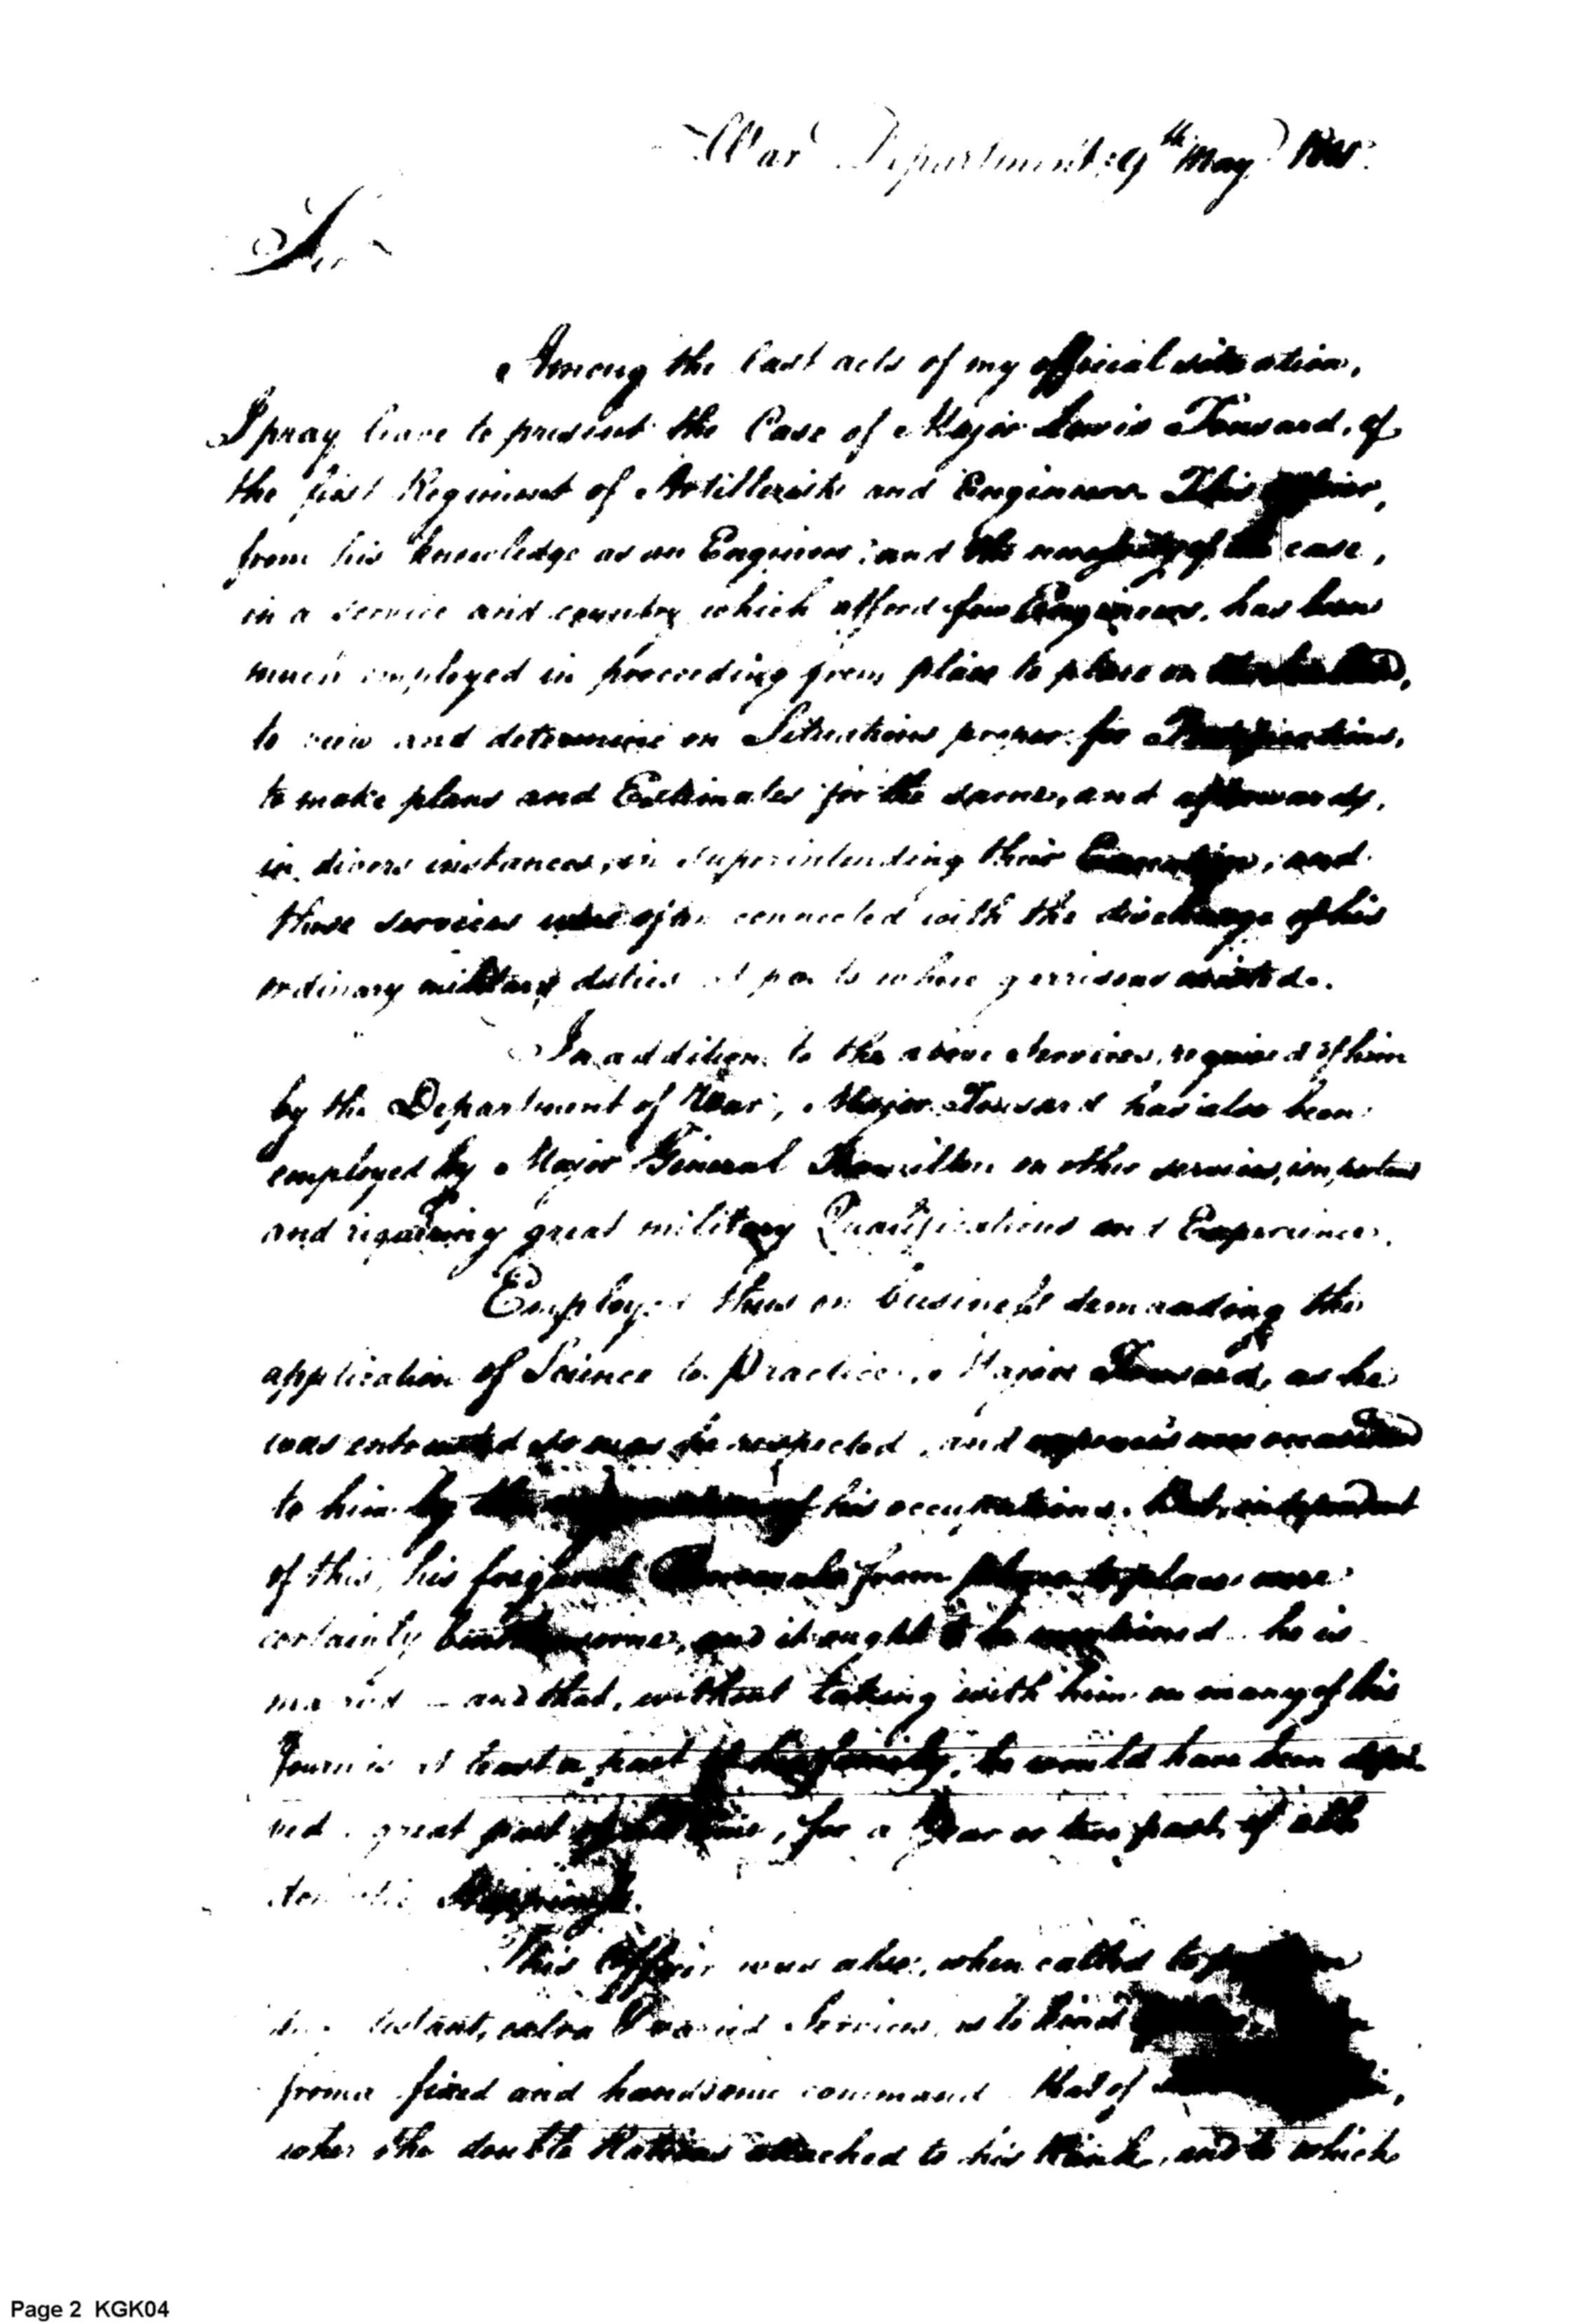 War Department 9th May
Sir
Among the last acts of my official situation,
I pray leave to present the Case of Major Lewis Tousard, of
the first Regiment of Artillerists and Engineers This
from his knowledge as an Engineer; and the necessity of the case,
in a service and country which afford few Engineers, has been
much employed in proceeding from place to place on
to view and determine on Situations proper for Fortifications,
to make plans and Estimates for the same, and afterwards,
in divers instances, in superintending their Execution; and
these services were often connected with the discharge of his
ordinary military duties at posts where garrisons existed.
In addition to the above Services, required of him
by the Department of War, Major Tousard has also been
employed by Major General Hamilton on other services, important
and requiring great military Qualifications and Experience.
Employed thus on business demanding the
application of Science to Practice, Major Tousard, as he
was entrusted so was he respected, and expences were occasioned
to him by the of his occupations. But, independent
of this, his frequent Removals from place to place were
certainly burthensome, and it ought to be mentioned he is
married and that, without taking with him on many of his
Journies at least a part of his family, he would have been depri
ved a great part of the time, for a Year or two past, of all
domestic Happiness.
This Officer was also, when called to
distant, extra Services,
from a fixed and handsome command that of
where the double Rations attached to his Rank, and to which
Page 2 KGK04